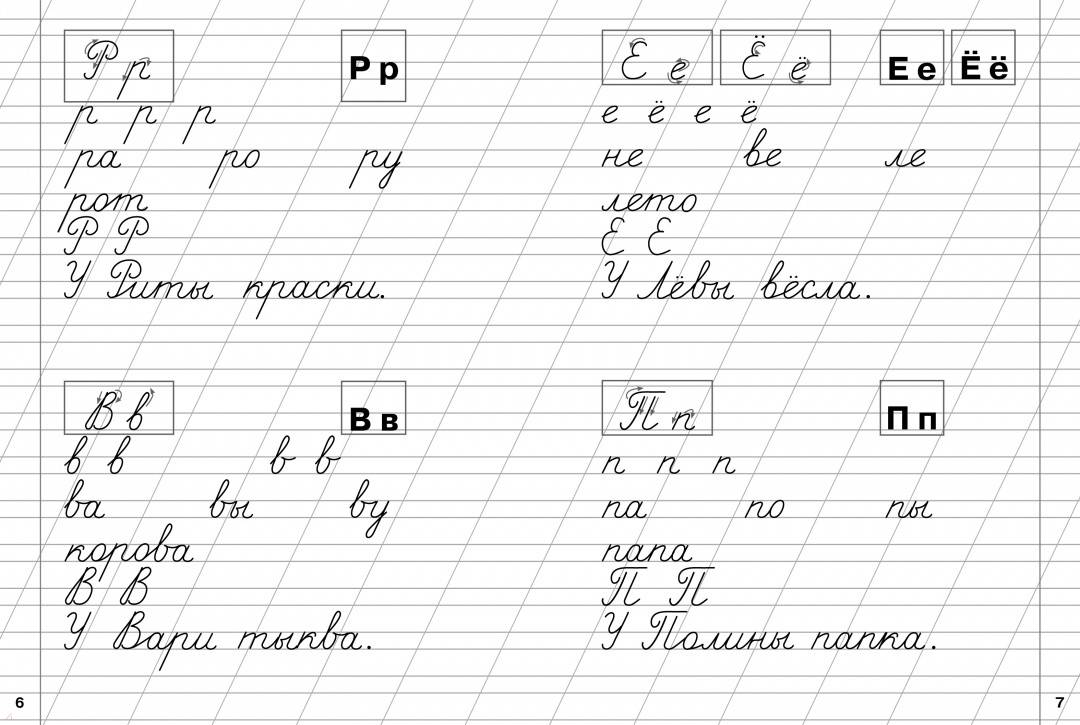 Р р Р р
р р р
ра ро ру
рот
Р Р
У Риты краски.
В в В в
в в в в
ва вы ву
корова
В В
У Вари тыква.
6
Е е Ё ё Е е Ё ё
е ё е ё
не ве ле
лето
Е Е
У Лёвы вёсла.
П п П п
п п п
па по пы
папа
П П
У Полины папка.
7